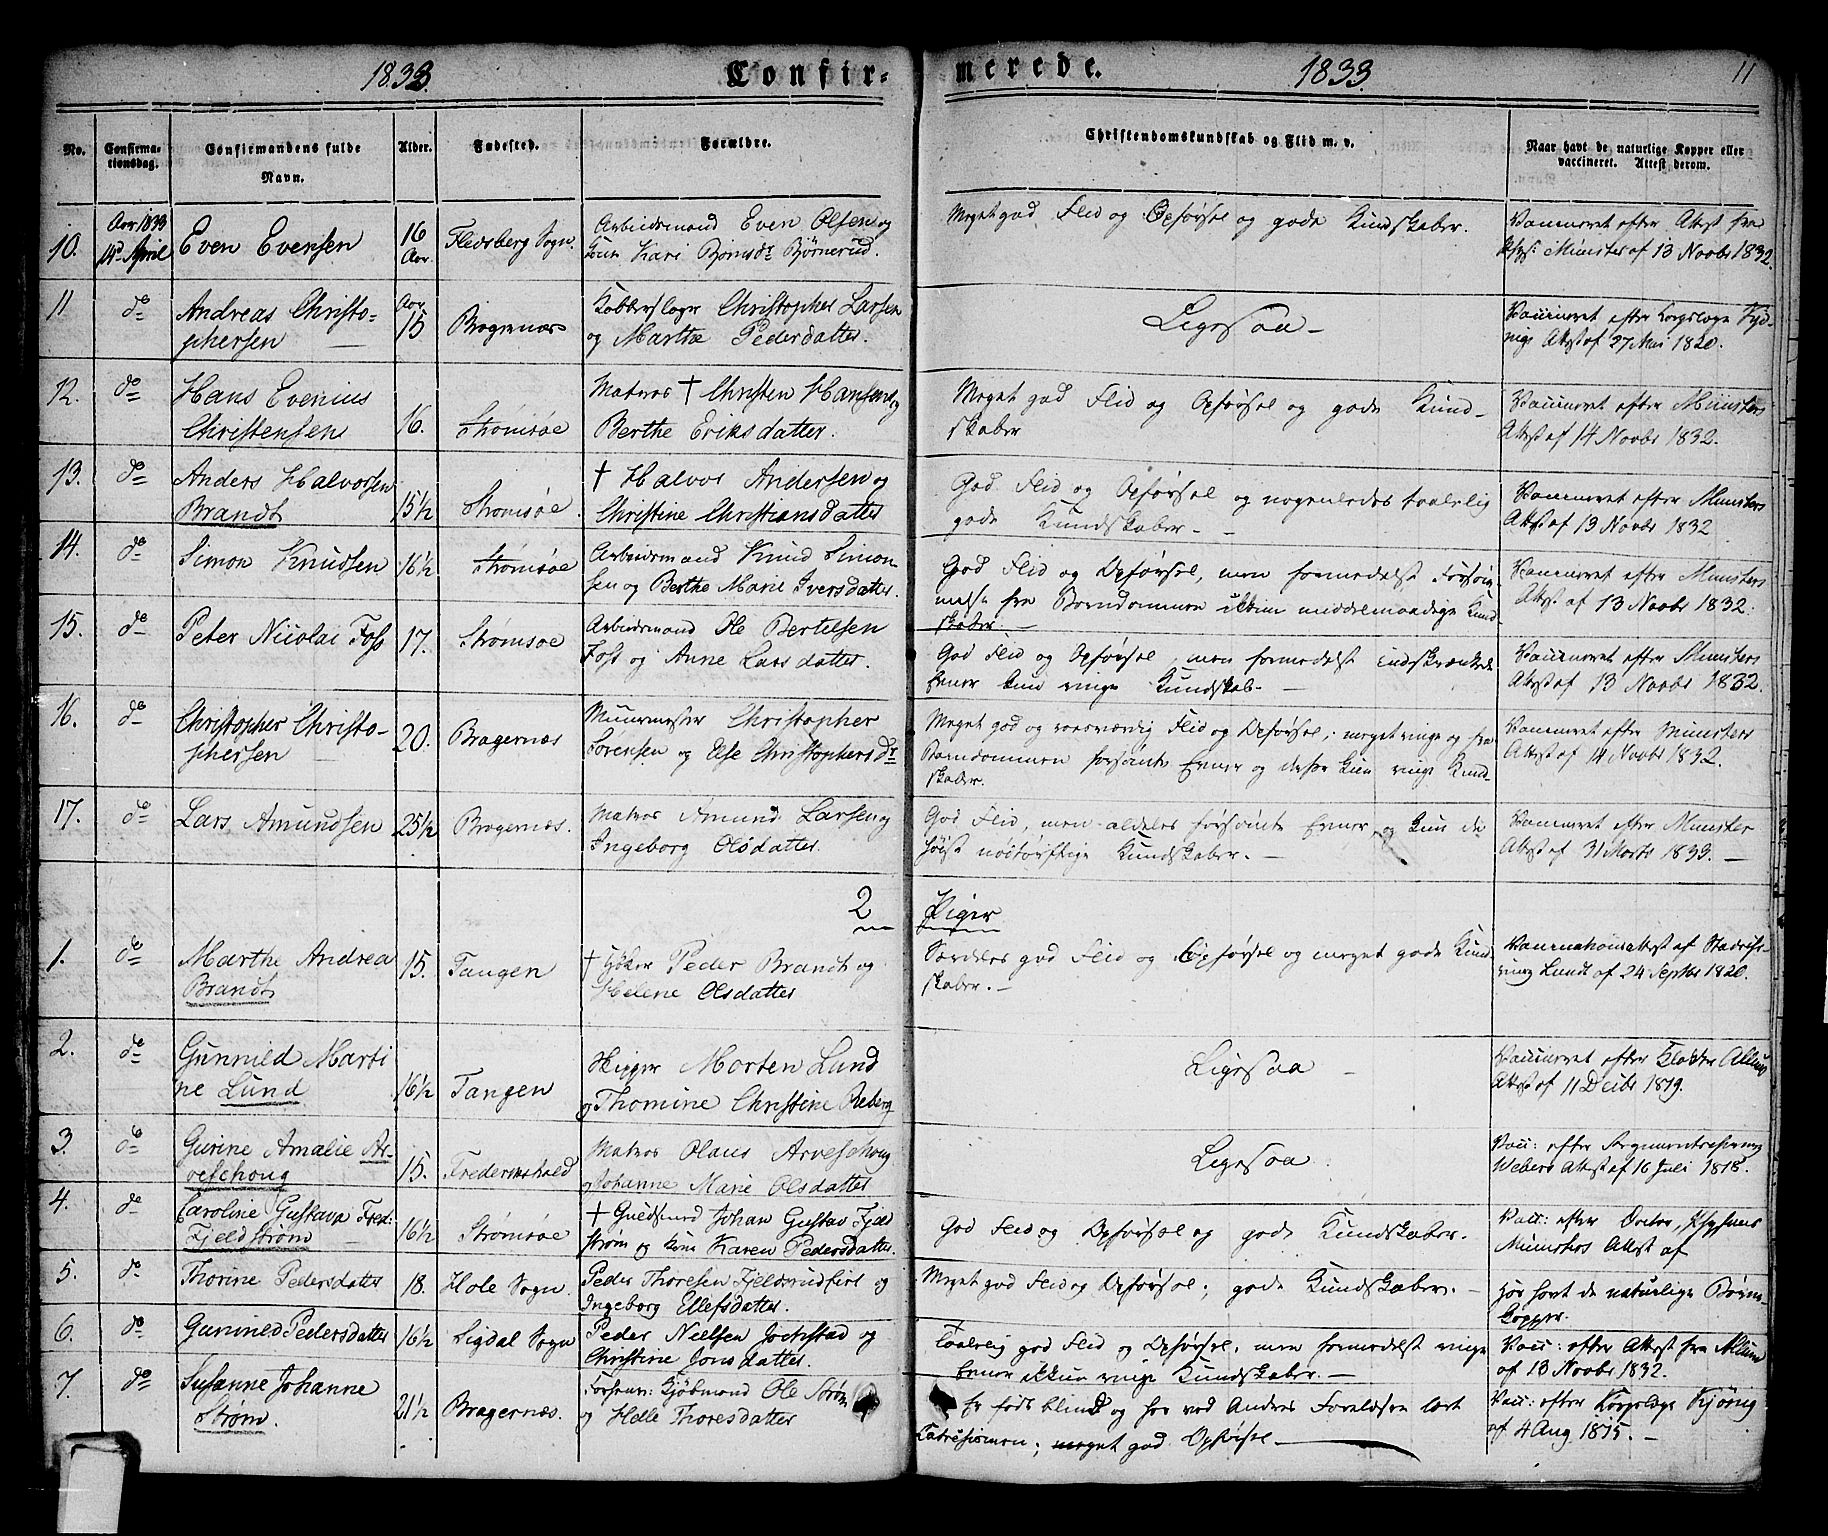 1833. Confir-
merede. 1833. 11
No. Confirma-tionsdag. Confirmandens fulde Navn. Alder. Fødested. Forældre.
Christendomskundskab og Flid m. v. Naar havt de naturlige Kopper eller vaccineret. Attest derom.
10. Aar 1833 14d April Even Evensen 16 Aar Flesberg Sogn. Arbeidsmand Even Olsen og
Kone Kari Bjørnsdr Bjørnerud.
Meget god Flid og Opførsel og gode Kundskaber.
Vaccineret efter Attest fra
Münster af 13 Novbr 1832.
11 do Andreas Christo-
phersen Aar 15 Bragernæs Kobberslager Christopher Larsen
og Marthe Pedersdatter.
Ligesaa
Vaccineret efter
Attest af 27 Mai 1820.
12. do Hans Evenius
Christensen 16. Strømsøe Matros † Christen Hansen og
Berthe Eriksdatter.
Meget god Flid og Opførsel og gode Kund-
skaber
Vaccineret efter Münsters
Attest af 14 Novbr 1832.
13. do Anders Halvorsen
Brandt 15½ Strømsøe. † Halvor Andersen og
Christine Christiansdatter
God Flid og Opførsel og nogenledes taalelig
gode Kundskaber.
Vaccineret efter Münsters
Attest af 13 Novbr 1832
14. do Simon Knudsen 16½ Strømsøe Arbeidsmand Knud Simon-
sen og Berthe Marie Iversdatter.
God Flid og Opførsel, men formedelst Forsøm-
melse fra Barndommen ikkun middelmaadige Kund-
skaber.
Vaccineret efter Münsters
Attest af 13 Novbr 1832.
15. do Peter Nicolai Foss 17. Strømsøe Arbeidsmand Ole Bertelsen
Foss og Anne Larsdatter.
God Flid og Opførsel, men formedelst indskrænkede
Evner kun ringe Kundskab.
Vaccineret efter Münsters
Attest af 13 Novbr 1832.
16. do Christopher Christo-
phersen 20. Bragernæs Muurmester Christopher
Sørensen og Else Christophersdr
Meget god og roesværdig Flid og Opførsel; meget ringe og fra
Barndommen forsømte Evner og derfor kun ringe Kund-
skaber.
Vaccineret efter Münsters
Attest af 14 Novbr 1832.
17. do Lars Amundsen 25½ Bragernæs. Matros Amund Larsen og
Ingeborg Olsdatter
God Flid, men aldeles forsømte Evner, og kun de
høist nødtørftige Kundskaber.
Vaccineret efter Münster
Attest af 31 Marts 1833.
2 Piger
1. do Marthe Andrea
Brandt 15. Tangen † Høker Peder Brandt og
Helene Olsdatter
Særdeles god Flid og Opførsel og meget gode Kund
skaber.
Vaccinationsattest af
Lundt af 24 Septbr 1820.
2. do Gunnild Marti
ne Lund 16½ Tangen Skipper Morten Lund
og Thomine Christine Reberg
Ligesaa
Vaccineret efter Klokker
Attest af 11 Decbr 1819.
3. do Gurine Amalie Ar-
veschoug 15. Fredrikshald Matros Olaus Arveschoug
og Johanne Marie Olsdatter
Ligesaa
Vacc: efter
Webers Attest af 16 Juli 1818.
4. do Caroline Gustava
Fjeldstrøm 16½ Strømsøe † Guldsmed Johan Gustav Fjeld
strøm og Kone Karen Pedersdatter.
God Flid og Opførsel og gode Kundskaber.
Vacc: efter Doctor,
Münsters Attest af
5. do Thorine Pedersdatter 18. Hole Sogn. Peder Thoresen og
Ingeborg Ellefsdatter.
Meget god Flid og Opførsel; gode Kundskaber.
har havt de naturlige Børne-
kopper.
6. do Gunnild Pedersdatter 16½ Sigdal Sogn Peder Nielsen og
Christine Jonsdatter.
Taalelig god Flid og Opførsel, men formedelst ringe
Evner ikkun ringe Kundskaber.
Vacc: efter Attest fra
af 13 Novbr 1832.
7. do Susanne Johanne
Strøm. 21½ Bragernæs. Kjøbmand Ole Strøm
og Helle Thoresdatter
Er født blind og har ved Andres Forelæsen lært
; meget god Opførsel
Vacc: efter
af 4 Aug. 1815.